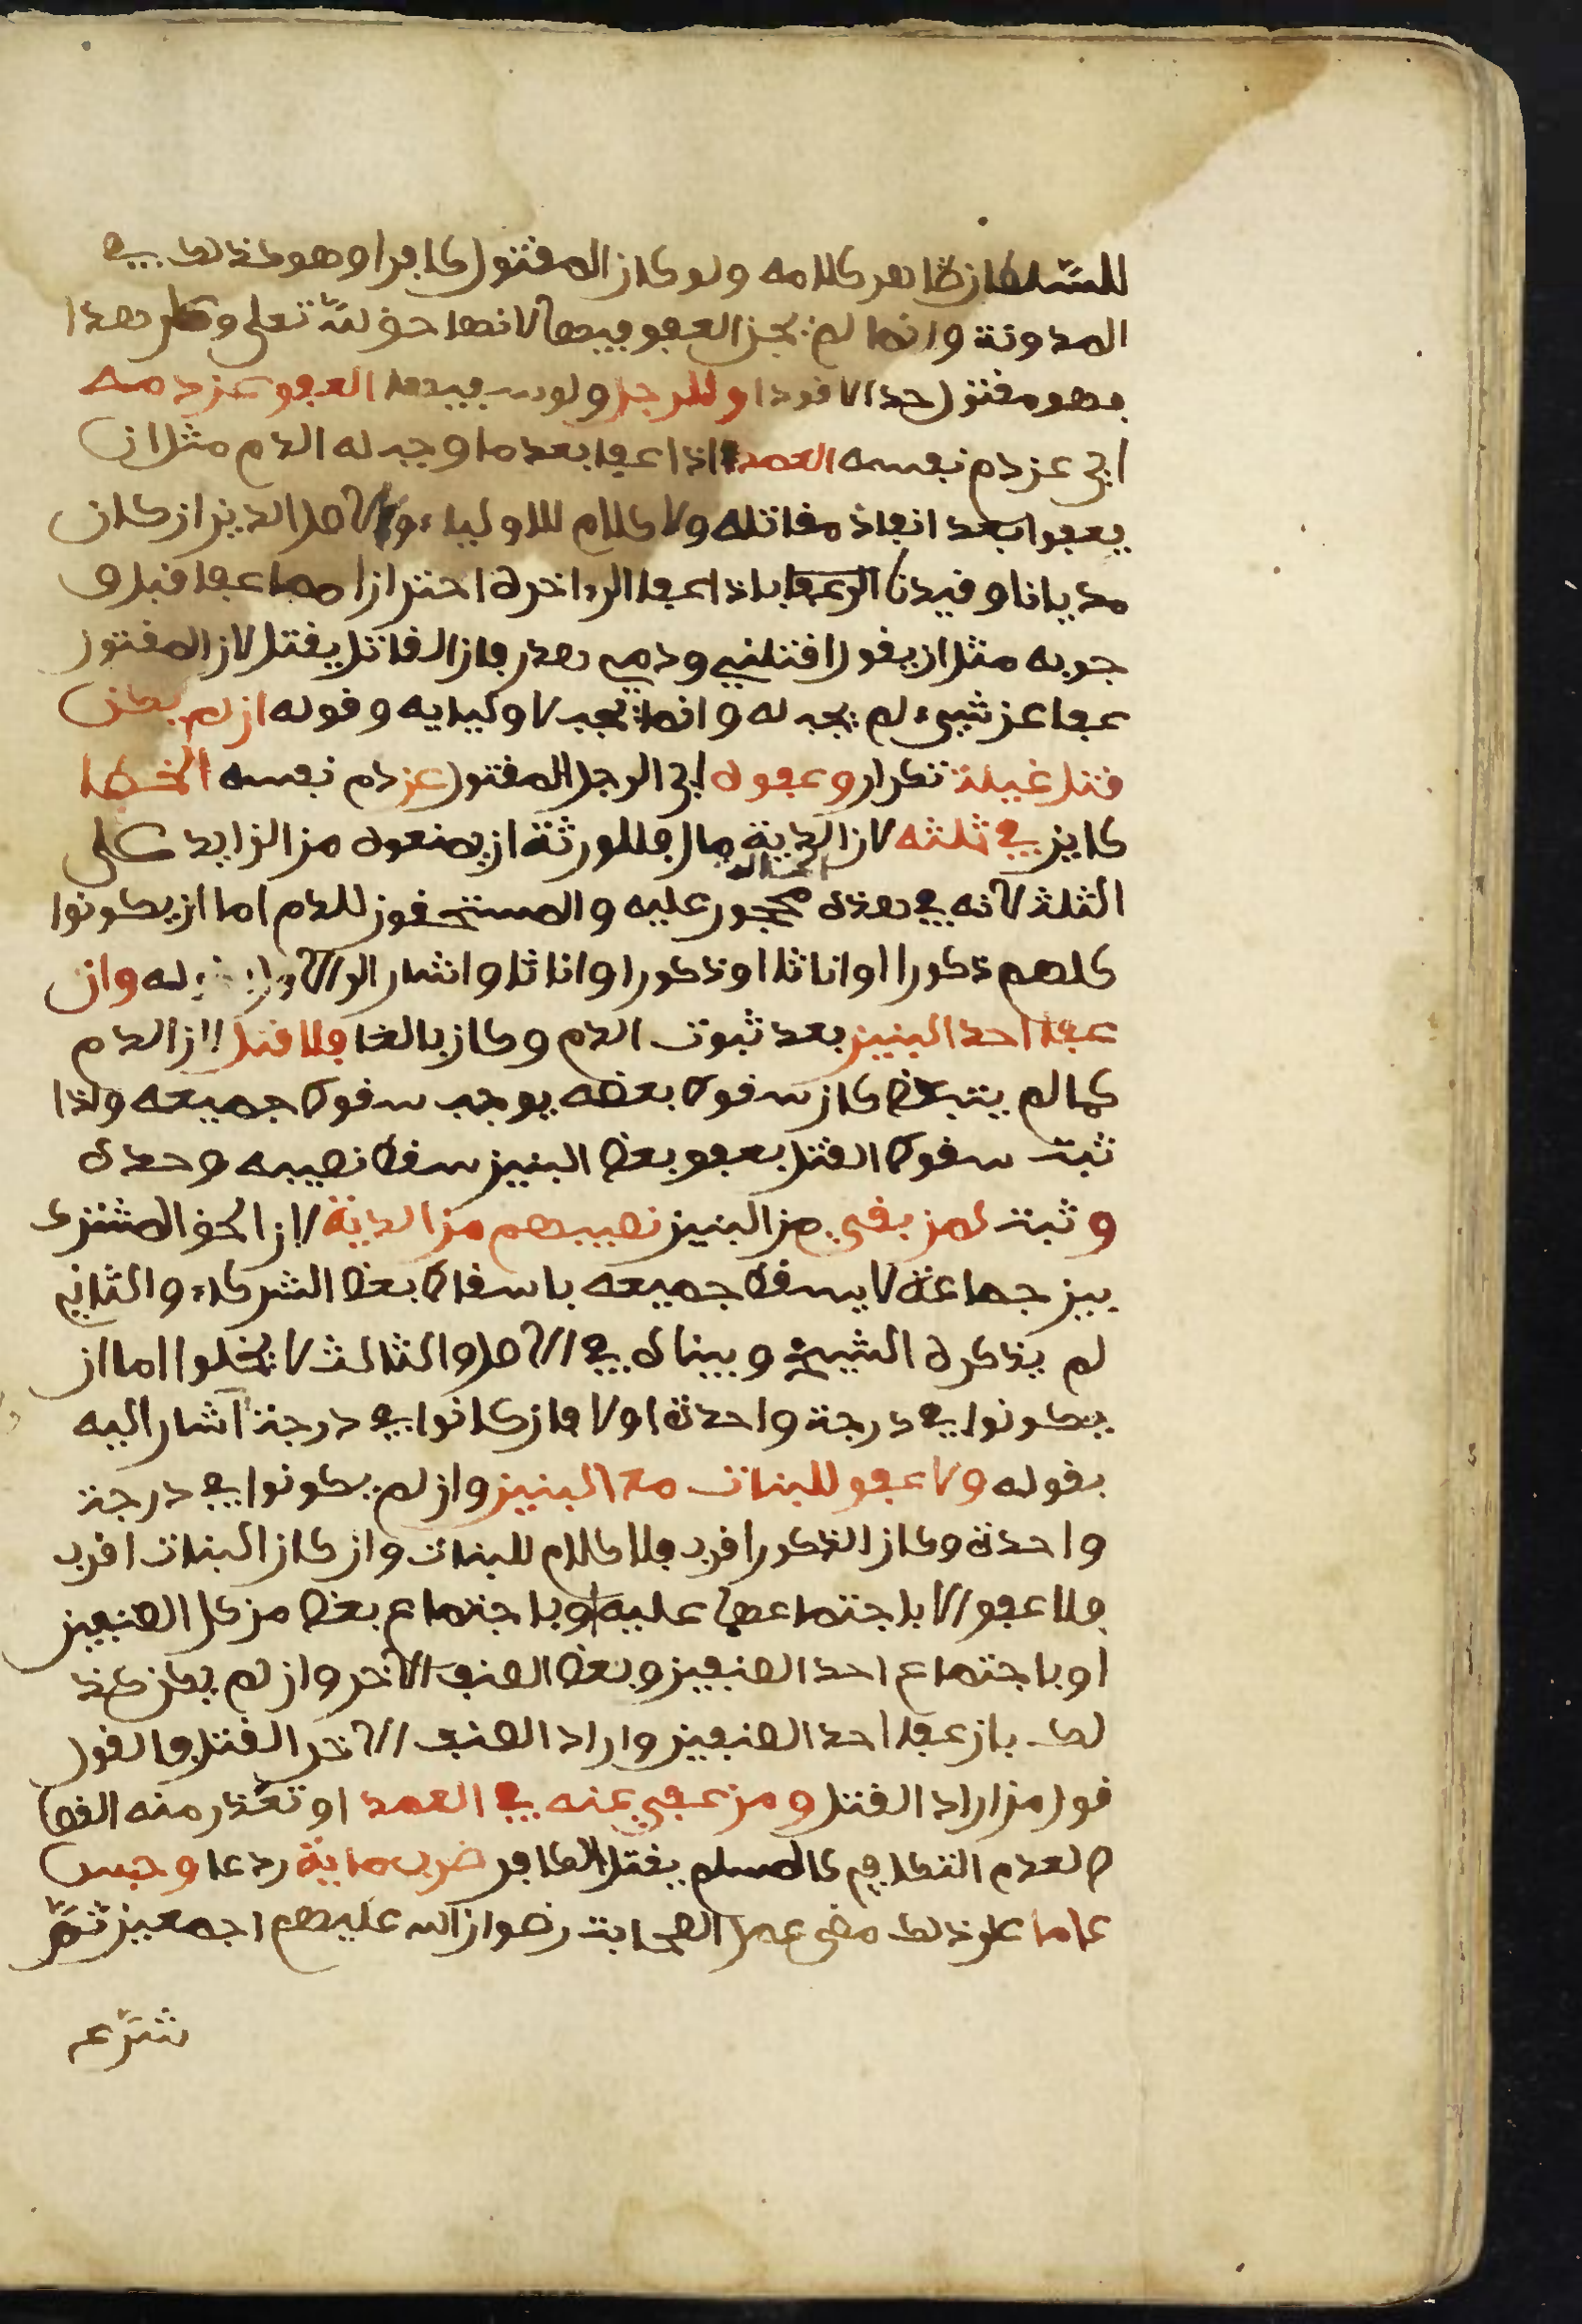 للسلطان ظاهر كلامه ولو كان المقتول كافرا وهو كذلك في
المدونة وانما لم يجز العفو فيها لانها حق لله تعلى وعلى هذا
فهو مقتول حدا لا قودا وللرجل ولو سفيها العفو عن دمه
اي عن دم نفسه العمد اذا عفا بعد ما وجب له الدم مثل ان
يعفوا بعد انفاذ مقاتله ولا كلام للاولياء ولا اهل الدين ان كان
مديانا وقيدنا العفا باذا عفا الى اخره احترازا مما عفا قبل و
جوبه مثل ان يقول اقتلني ودمي هدر فان القاتل يقتل لان المقتول
عفا عن شيء لم يجب له وانما يجب لاوليايه وقوله ان لم يكن
قتل غيلة تكرار وعفوه اي الرجل المقتول عن دم نفسه الخطا
كاين في ثلثه لان الدية مال فللورثة ان يمنعوه من الزايد على
الثلث لانه في هذه الحالة محجور عليه والمستحقون للدم اما ان يكونوا
كلهم ذكورا او اناثا او ذكورا واناثا واشار الى الاول بقوله وان
عفا احد البنين بعد ثبوت الدم وكان بالغا فلا قتل لان الدم
كما لم يتبعض كان سقوط بعضه يوجب سقوط جميعه واذا
ثبت سقوط القتل بعفو بعض البنين سقط نصيبه وحده
وثبت لمن بقي من البنين نصيبهم من الدية لان الحق المشترك
بين جماعة لا يسقط جميعه باسقاط بعض الشركاء والثاني
لم يذكره الشيخ وبيناه في الاصل والثالث لا يخلوا اما ان
يكونوا في درجة واحدة اولا فان كانوا في درجة اشار اليه
بقوله ولا عفو للبنات مع البنين وان لم يكونوا في درجة
واحدة وكان الذكور اقرب فلا كلام للبنات وان كان البنات اقرب
فلا عفو الا باجتماعهما عليه او باجتماع بعض من كل الصنفين
او باجتماع احد الصنفين وبعض الصنف الاخر وان لم يكن كذ
لك بان عفا احد الصنفين واراد الصنف الاخر القتل فالقول
قول من اراد القتل ومن عفي عنه في العمد او تعذر منه القصا
ص لعدم التكافي كالمسلم يقتل الكافر ضرب ماية ردعا وحبس
عاما على ذلك مضى عمل الصحابة رضوان الله عليهم اجمعين ثم
شرع